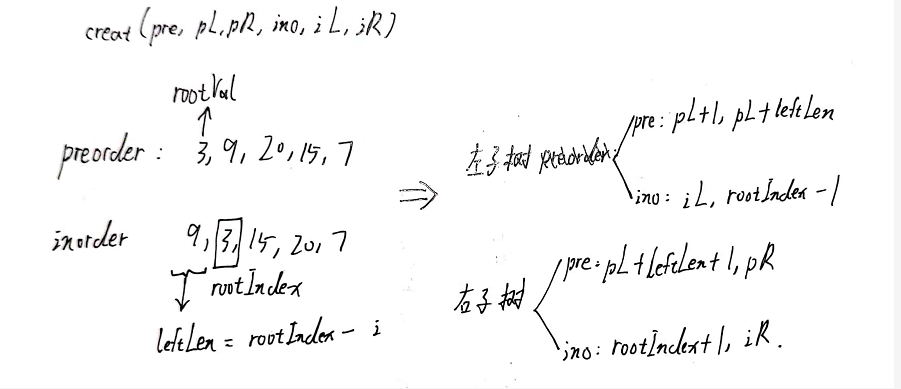 creat(pre, pL,pR, ino, iL, iR)
rootVal
preorder: 3, 9, 20, 15, 7
inorder 9, 3, 15, 20, 7
rootIndex
leftLen = rootIndex - i
左子树
pre: pL+1, pL+leftLen
ino: iL, rootIndex-1
右子树
pre: pL+leftLen+1, pR
ino: rootIndex+1, iR.